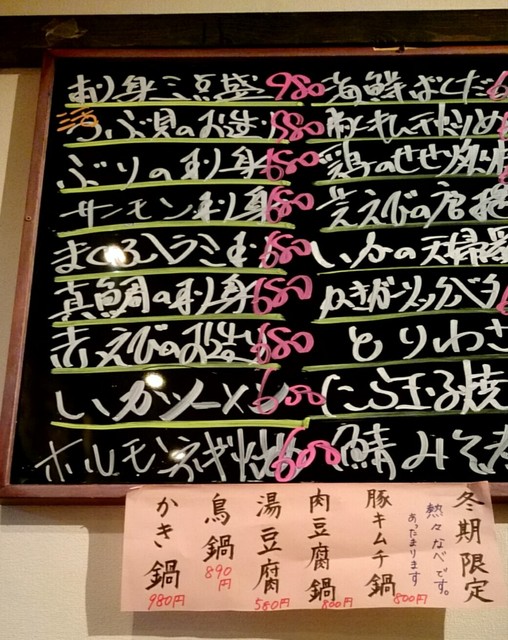 お刺身三点盛 980
活つぶ貝のお造り 880
ぶりの刺身 680
サーモン刺身 680
まぐろハラミ 680
真鯛の刺身 680
赤えびのお造り 680
いかソーメン 600
ホルモンネギ炒 600
海鮮ばくだ
豚キムチ炒め
鶏のせせり焼
芝えびの唐揚
いかの天婦羅
かきガーリックバタ
とりわさ
にら玉子焼
鯖みそ
冬期限定
熱々なべです。
あったまります
豚キムチ鍋 800円
肉豆腐鍋 800円
湯豆腐 580円
鳥鍋 890円
かき鍋 980円